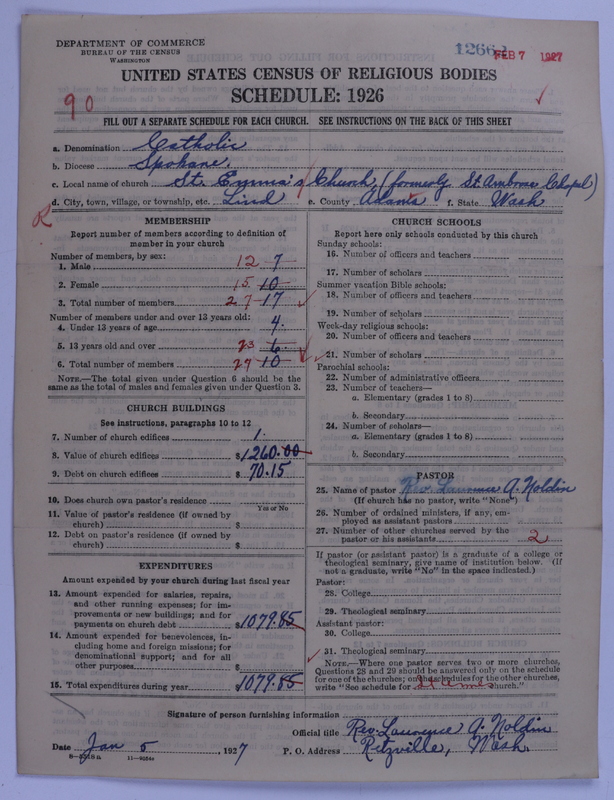 DEPARTMENT OF COMMERCE
BUREAU OF THE CENSUS
WASHINGTON
FEB 7 1927
UNITED STATES CENSUS OF RELIGIOUS BODIES
SCHEDULE: 1926
90
FILL OUT A SEPARATE SCHEDULE FOR EACH CHURCH. SEE INSTRUCTIONS ON THE BACK OF THIS SHEET
a. Denomination Catholic
b. Diocese Spokane.
c. Local name of church St. Emma's Church (formerly St Ambrose Chapel)
d. City, town, village, or township, etc. Lind e. County Adams f. State Wash
R
MEMBERSHIP
Report number of members according to definition of
member in your church
Number of members, by sex:
1. Male 12 7
2. Female 15 10
3. Total number of members 27 17
Number of members under and over 13 years old:
4. Under 13 years of age 4.
5. 13 years old and over 23 6.
6. Total number of members 27 10
NOTE.—The total given under Question 6 should be the
same as the total of males and females given under Question 3.
CHURCH BUILDINGS
See instructions, paragraphs 10 to 12
7. Number of church edifices 1.
8. Value of church edifices $1260.00
9. Debt on church edifices $70.15
10. Does church own pastor's residence
Yes or No
11. Value of pastor's residence (if owned by
church) $
12. Debt on pastor's residence (if owned by
church) $
EXPENDITURES
Amount expended by your church during last fiscal year
13. Amount expended for salaries, repairs,
and other running expenses; for im-
provements or new buildings; and for
payments on church debt $1079.85
14. Amount expended for benevolences, in-
cluding home and foreign missions; for
denominational support; and for all
other purposes $
15. Total expenditures during year $1079.85
CHURCH SCHOOLS
Report here only schools conducted by this church
Sunday schools:
16. Number of officers and teachers
17. Number of scholars
Summer vacation Bible schools:
18. Number of officers and teachers
19. Number of scholars
Week-day religious schools:
20. Number of officers and teachers
21. Number of scholars
Parochial schools:
22. Number of administrative officers
23. Number of teachers—
a. Elementary (grades 1 to 8)
b. Secondary
24. Number of scholars—
a. Elementary (grades 1 to 8)
b. Secondary
PASTOR
25. Name of pastor Rev. Laurence A. Noldin
(If church has no pastor, write "None")
26. Number of ordained ministers, if any, em-
ployed as assistant pastors
27. Number of other churches served by the
pastor or his assistants 2
If pastor (or assistant pastor) is a graduate of a college or
theological seminary, give name of institution below. (If
not a graduate, write "No" in the space indicated.)
Pastor:
28. College
29. Theological seminary
Assistant pastor:
30. College
31. Theological seminary
NOTE.—Where one pastor serves two or more churches,
Questions 28 and 29 should be answered only on the schedule
for one of the churches; on the schedules for the other churches,
write "See schedule for church."
Signature of person furnishing information
Official title Rev. Laurence A. Noldin
Date Jan 5, 1927 P. O. Address Ritzville, Wash.